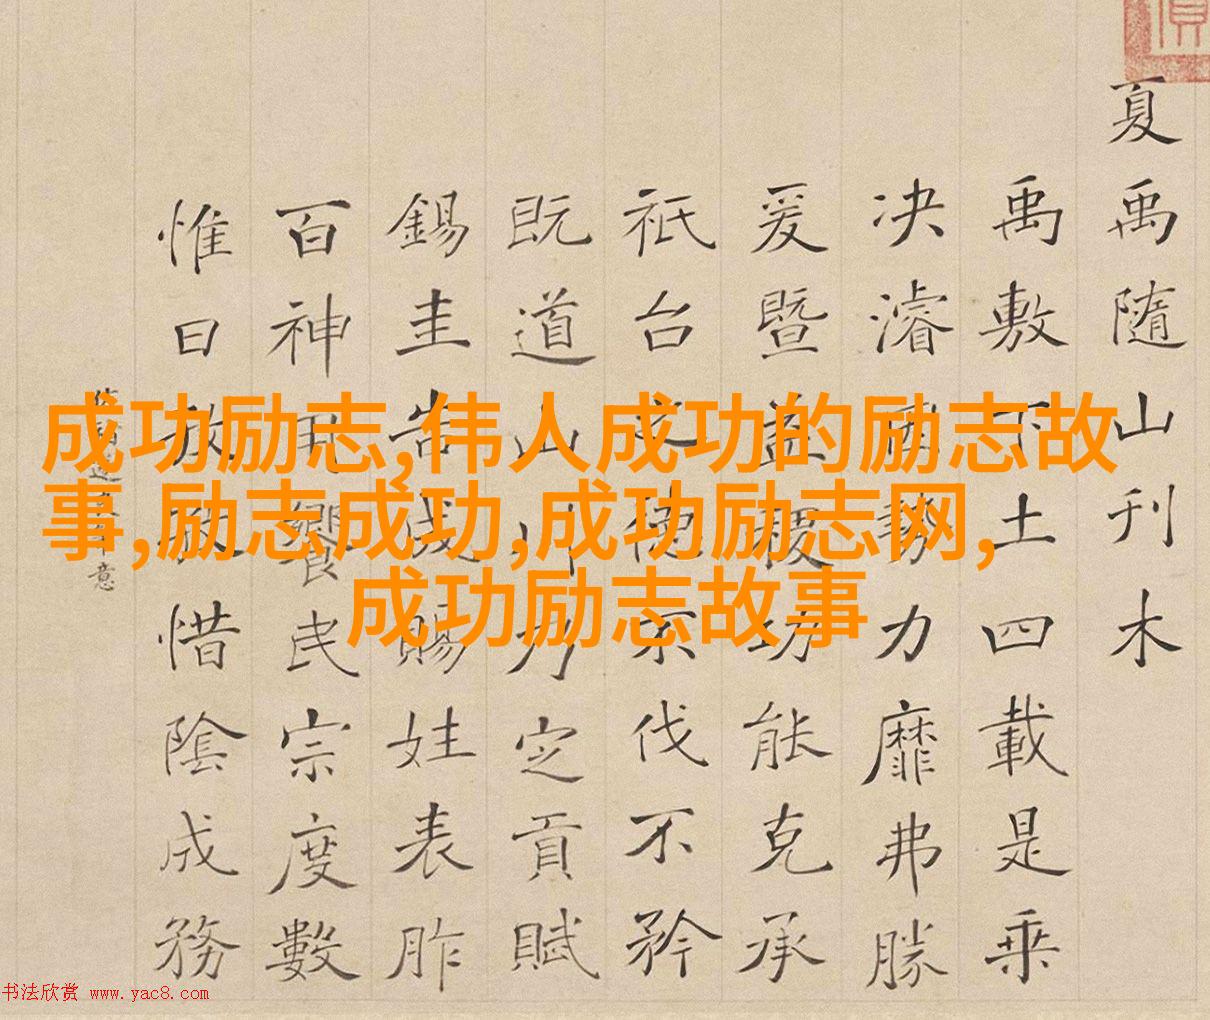 成功励志,伟人成功的励志故
事,励志成功,成功励志网,
成功励志故事
夏禹隨山刊木
禹敷下土四載是乘
决濬勢力靡弗勝
爰暨益稷功能克承
祇台德不伐不矜
既道山川乃定貢賦
錫圭告成賜姓表胙
百神用饗民宗度數
惟日孜孜惜陰成務
意
书法欣赏 www.yac8.com